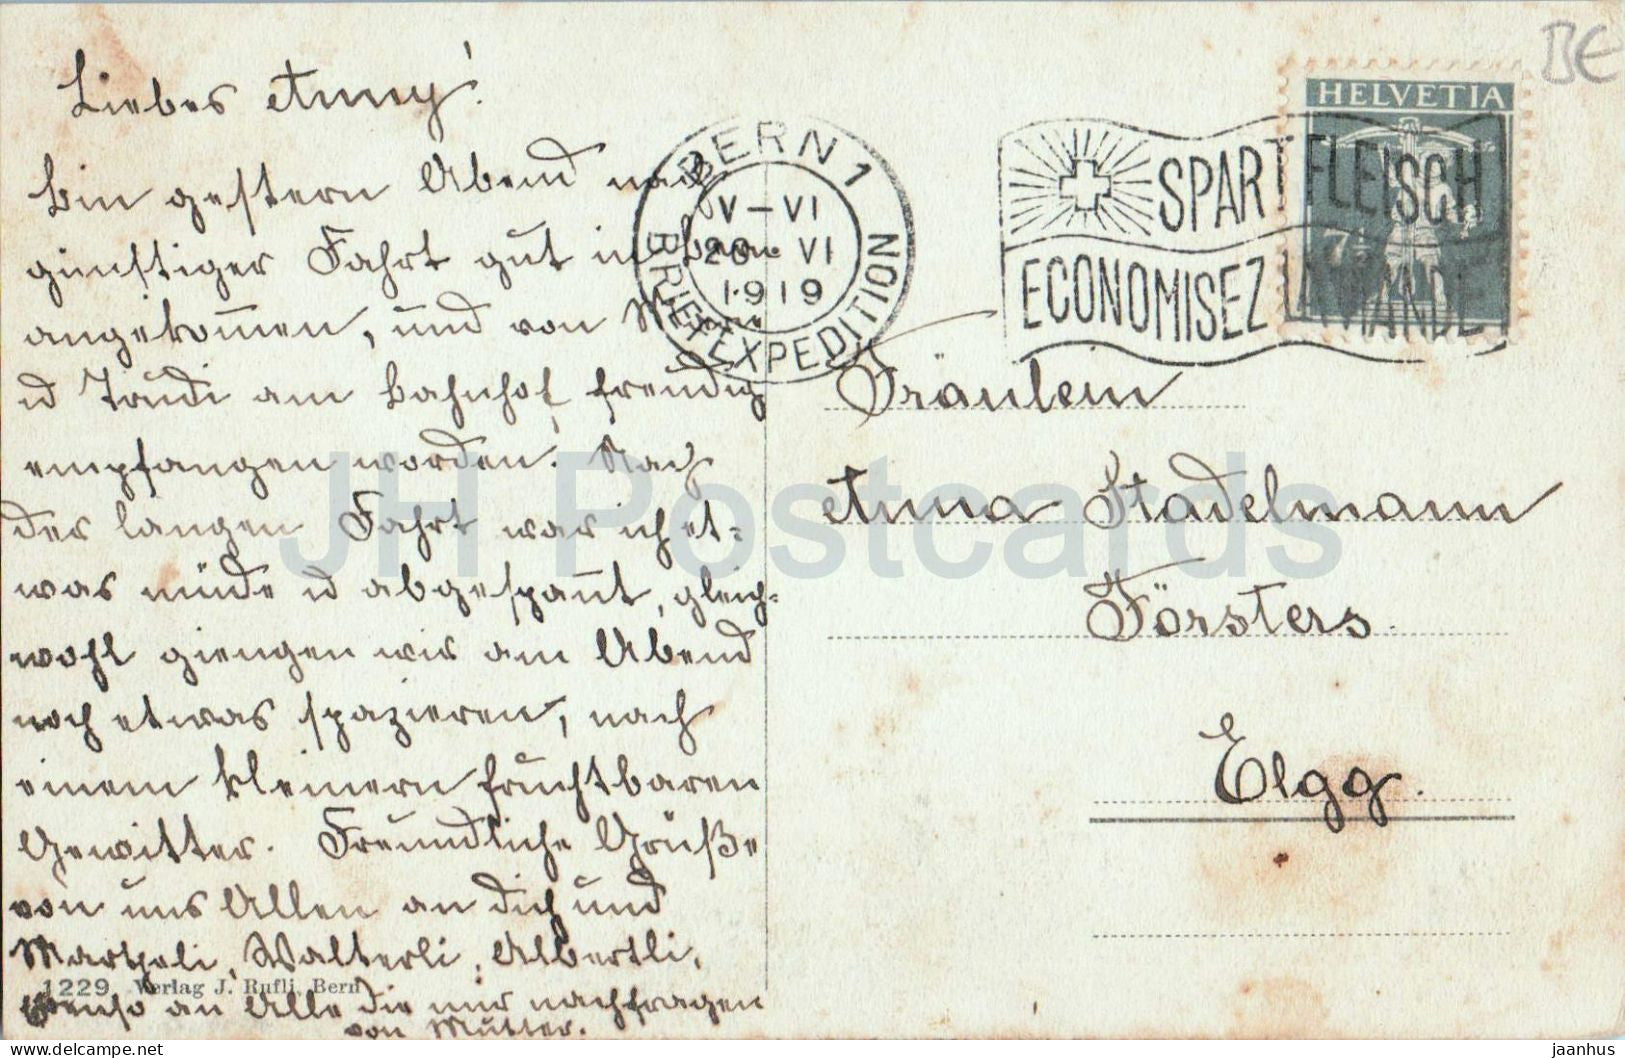 Liebes Anny!
Bin gestern Abend nach
günstiger Fahrt gut in Bern
angekom̄en, und von
u Trudi am Bahnhof freudig
empfangen worden. Nach
der langen Fahrt war ich et=
was müde u abgespan̄t, gleich=
wohl giengen wir am Abend
noch etwas spazieren, nach
einem kleinern fruchtbaren
Gewitter. Freundliche Grüße
von uns Allen an dich und
Martheli, Walterli, Albertli,
Ebenso an Alle die mir nachfragen
von Mutter.
1229 Verlag J. Rufli, Bern
BERN 1
BRIEFEXPEDITION
V–VI
20. VI
1919
SPART FLEISCH
ECONOMISEZ LA VIANDE
HELVETIA
7½
BE
Fräulein
Anna Stadelmann
Försters
Elgg.
JH Postcards
jaanhus
delcampe.net